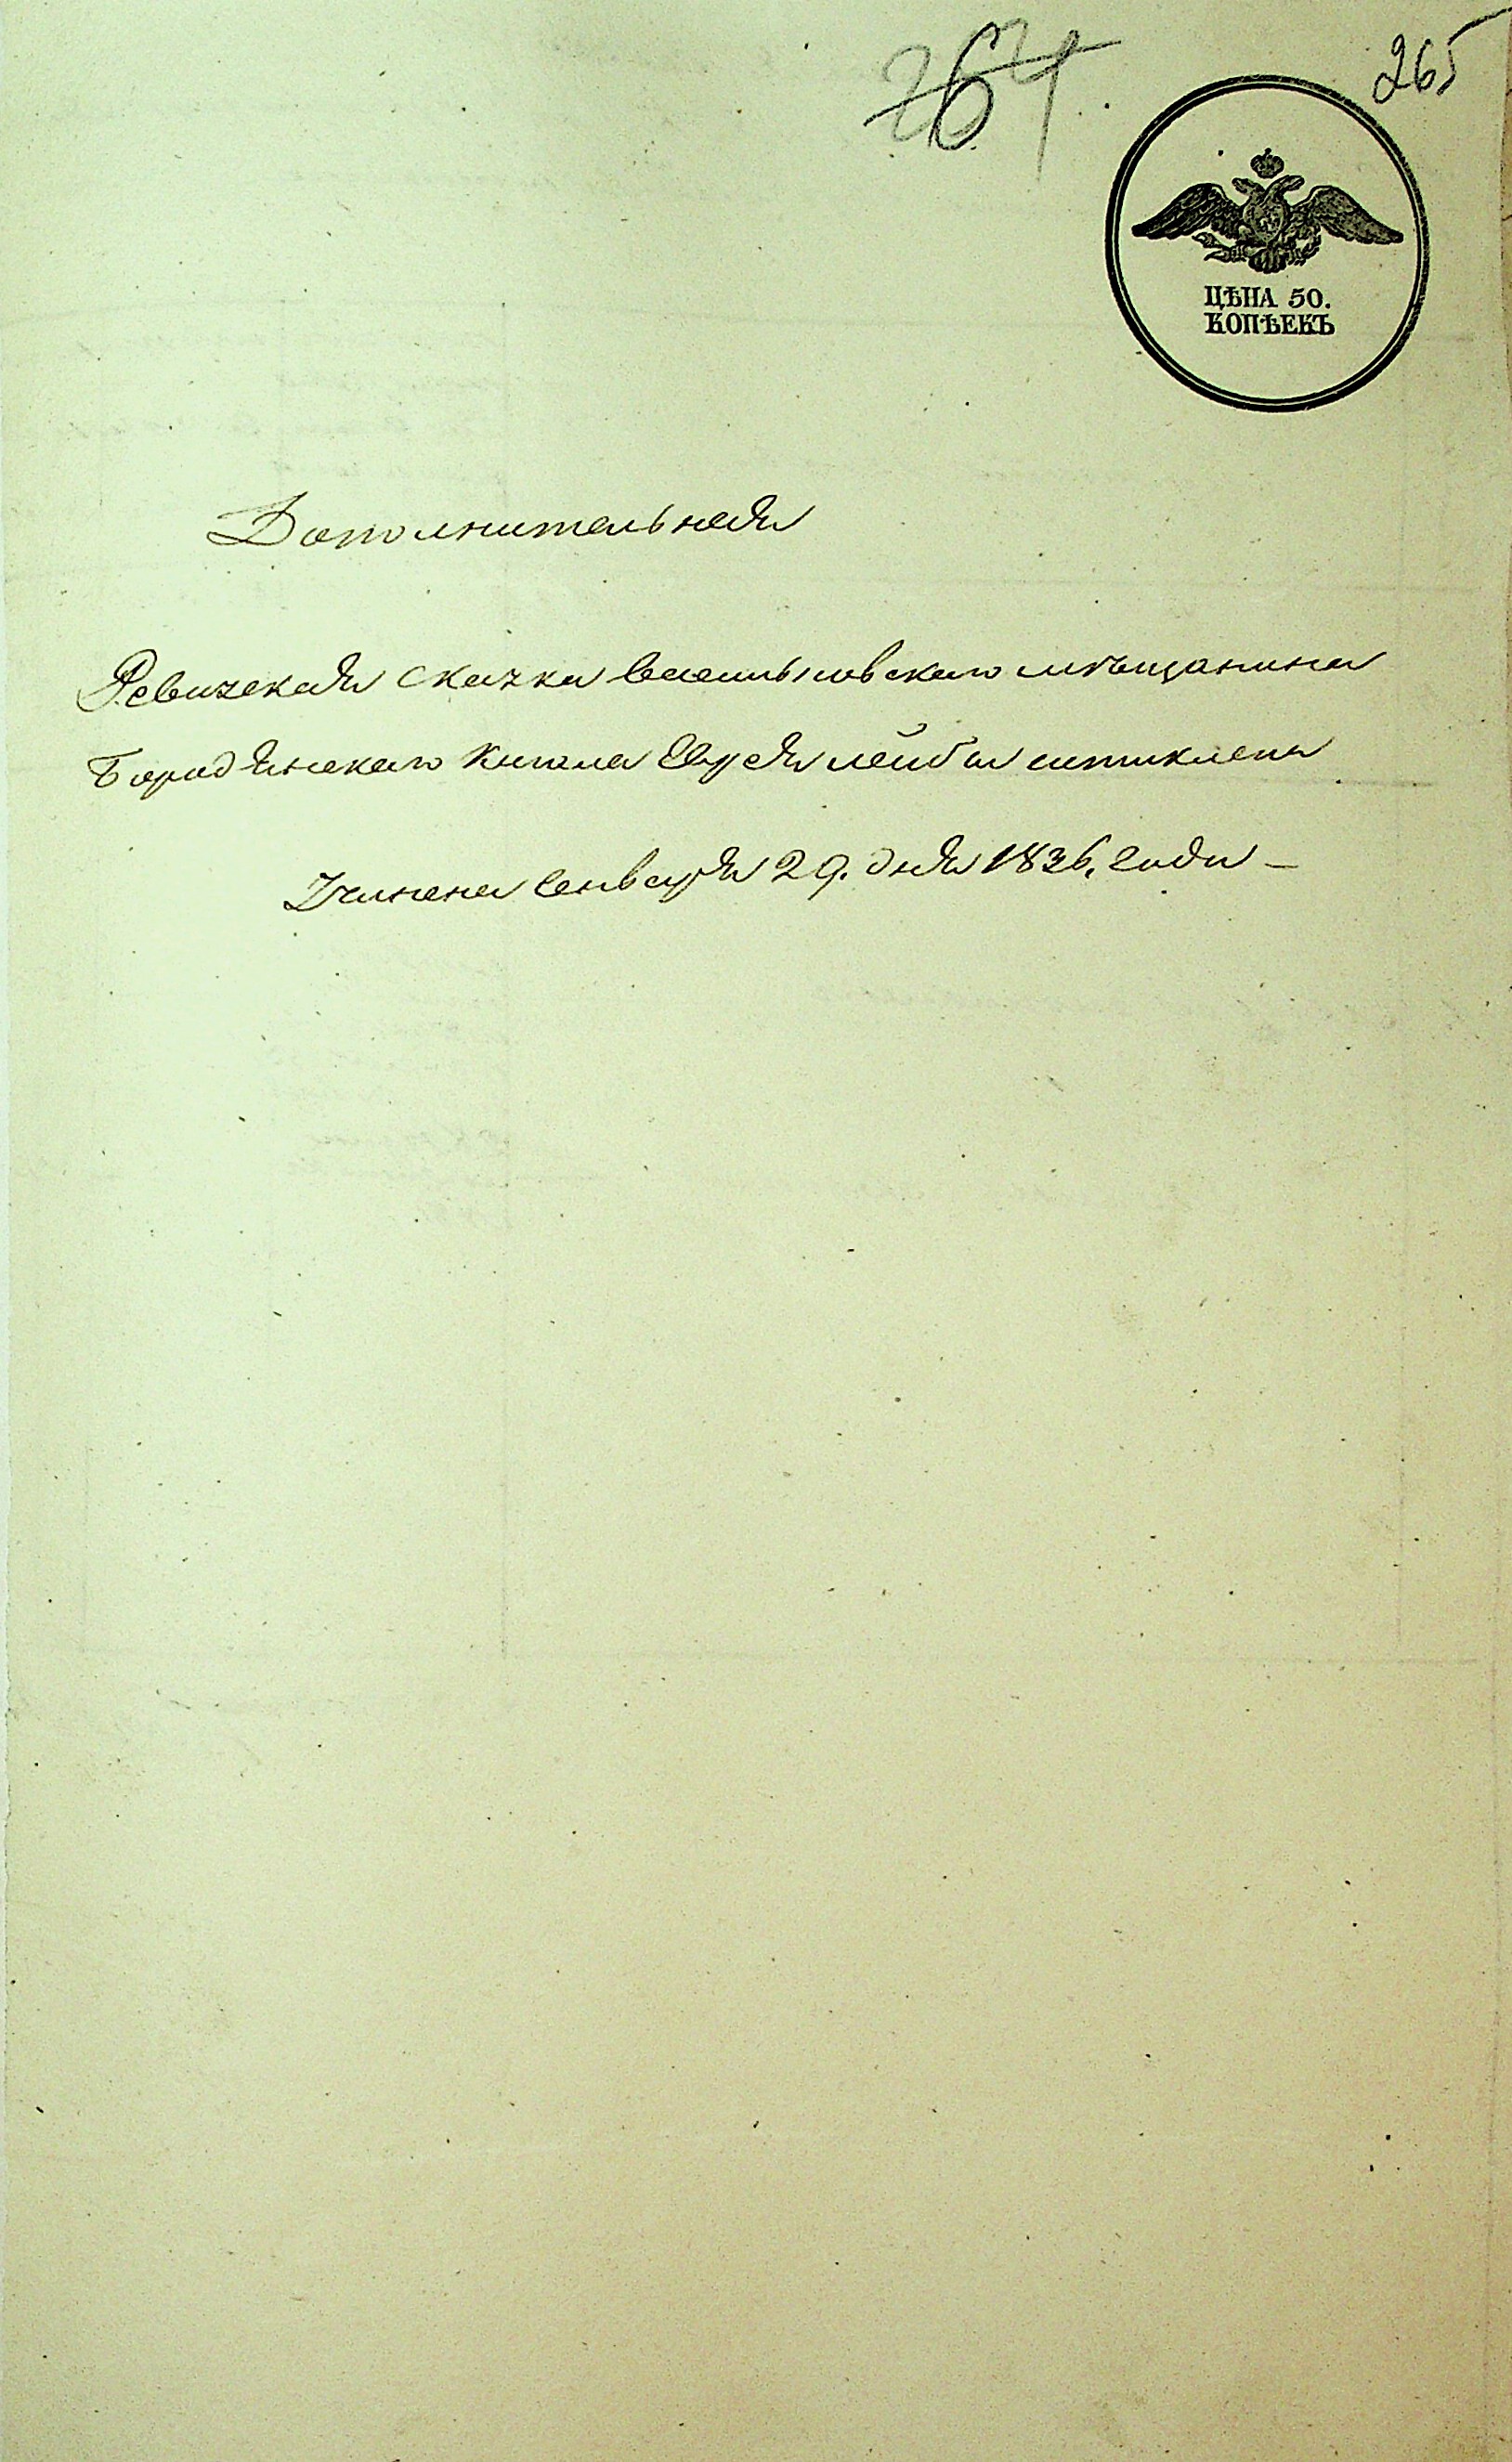 264
265
ЦѢНА 50.
КОПѢЕКЪ
Дополнительная
Ревизская сказка васильковскаго мѣщанина
Бородянскаго Кагала Еврея лейбы
Учинена Генваря 29. дня 1836. года –